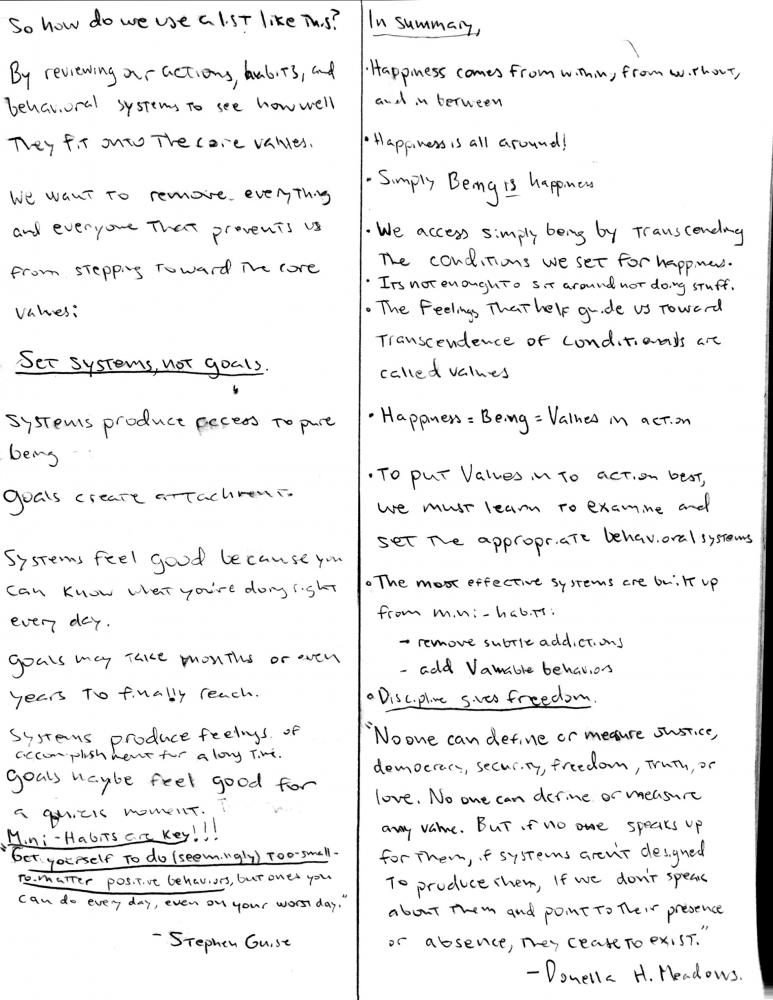 So how do we use a list like this?
By reviewing our actions, habits, and
behavioral systems to see how well
they fit onto the core values.
We want to remove everything
and everyone that prevents us
from stepping toward the core
values:
Set systems, not goals.
Systems produce access to pure
being
goals create attachment.
Systems feel good because you
can know what you're doing right
every day.
goals may take months or even
years to finally reach.
Systems produce feelings of
accomplishment for a long time.
goals maybe feel good for
a quick moment.
Mini-Habits are key!!!
"Get yourself to do (seemingly) too-small-
to-matter positive behaviors, but ones you
can do every day, even on your worst day."
- Stephen Guise
In summary,
• Happiness comes from within, from without,
and in between
• Happiness is all around!
• Simply Being is happiness
• We access simply being by transcending
the conditions we set for happiness.
• Its not enough to sit around not doing stuff.
• The Feelings that help guide us toward
transcendence of conditionals are
called values
• Happiness = Being = Values in action
• To put Values in to action best,
we must learn to examine and
set the appropriate behavioral systems
• The most effective systems are built up
from mini-habits:
- remove subtle addictions
- add Valuable behaviors
• Discipline gives freedom.
"No one can define or measure justice,
democracy, security, freedom, truth, or
love. No one can define or measure
any value. But if no one speaks up
for them, if systems aren't designed
to produce them, If we don't speak
about them and point to their presence
or absence, they cease to exist."
- Donella H. Meadows.